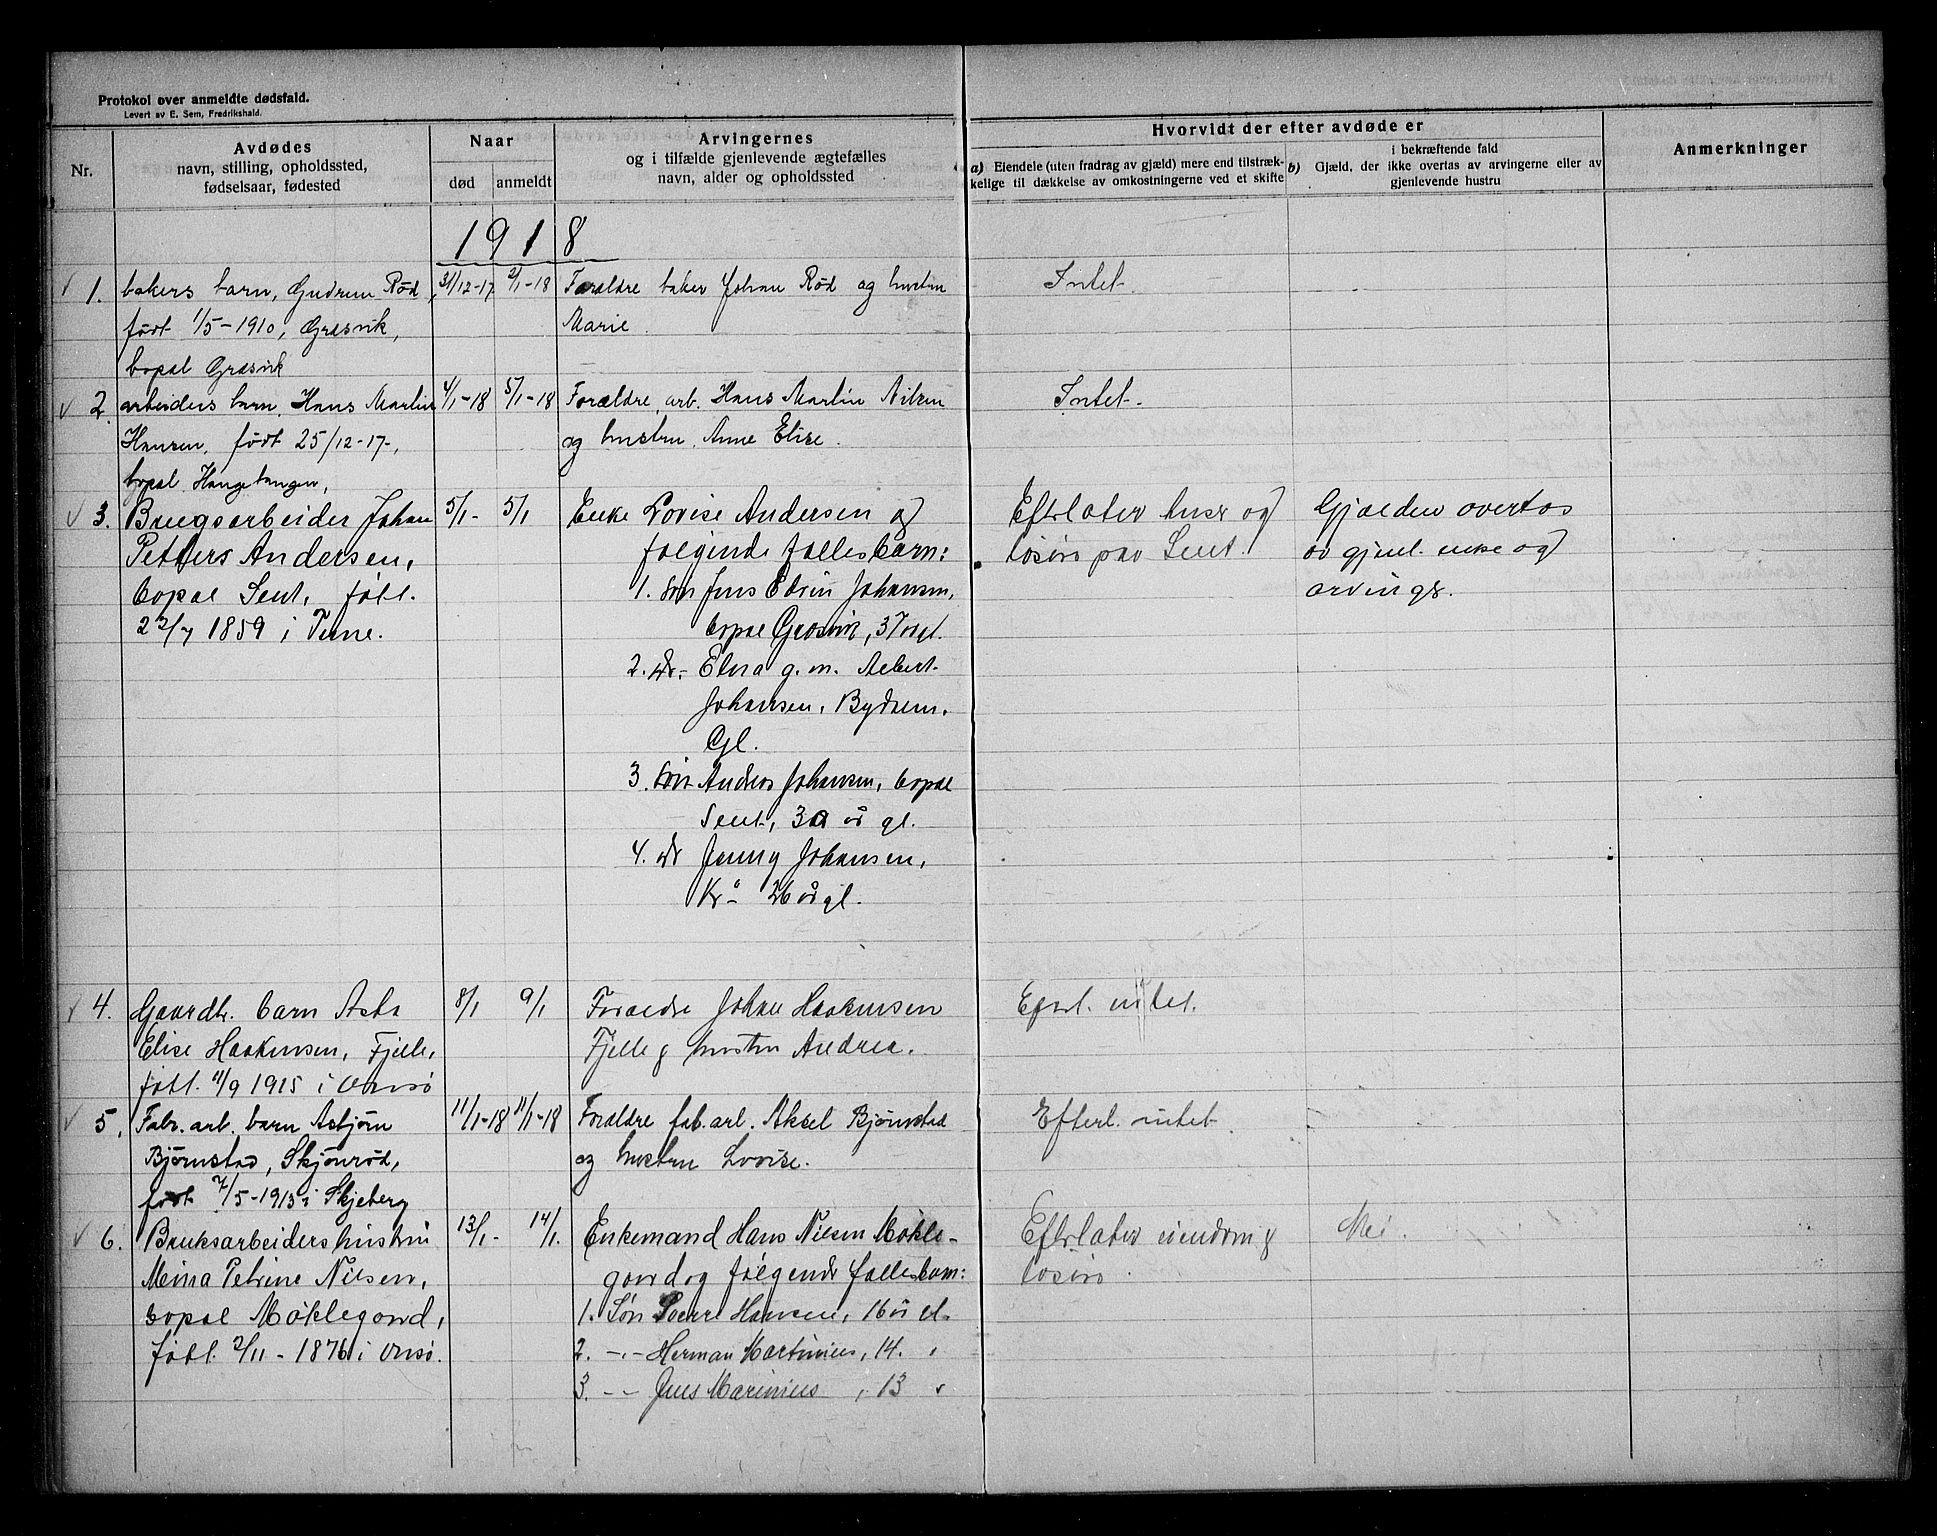 Protokol over anmeldte dødsfald.
Levert av E. Sem, Fredrikshald.
Nr.
Avdødes
navn, stilling, opholdssted,
fødselsaar, fødested
Naar
død
anmeldt
Arvingernes
og i tilfælde gjenlevende ægtefælles
navn, alder og opholdssted
Hvorvidt der efter avdøde er
a) Eiendele (uten fradrag av gjæld) mere end tilstræk-
kelige til dækkelse av omkostningerne ved et skifte
b) i bekræftende fald
Gjæld, der ikke overtas av arvingerne eller av
gjenlevende hustru
Anmerkninger
1918
1. bakers barn, Gudrun Rød,
født 1/5-1910, Græsvik,
bopæl Græsvik
31/12-17 2/1-18
Forældre baker Johan Rød og hustru
Marie.
Intet.
2 arbeiders barn, Hans Martin
Hansen, født 25/12-17,
bopæl
4/1-18 5/1-18
Forældre, arb. Hans Martin Nilsen
og hustru Anne Elise.
Intet.
3. Brugsarbeider Johan
Petters Andersen,
bopæl Lent, født
22/7 1859 i Tune.
5/1- 5/1
Enke Lovise Andersen og
følgende fællesbarn:
1. søn Jens Edvin Johansen,
bopæl Græsvik, 37 år gl.
2. dr. g. m. Albert
Johansen,
Gl.
3. søn Anders Johansen, bopæl
år gl.
4. dr Jenny Johansen,
Kr-a 26 år gl.
Efterlater huse og
løsøre paa
Gjælden overtas
av gjenl. enke og
arvinge.
4. Gaardbr. barn Asta
Elise Haakensen, Fjelle,
født 11/9 1915 i Onsø
8/1 9/1
Forældre Johan Haakensen
Fjelle & hustru Andrea.
Eferl. intet.
5. Fabr. arb. barn Asbjørn
Bjørnstad, Skjönröd,
født 7/5-1913 i Skjeberg
11/1-18 11/1-18
Forældre fab. arb. Aksel Bjørnstad
og hustru Lovise.
Efterl. intet.
6. Bruksarbeiders hustru
Mina Petrine Nilsen,
bopæl Möklegaard,
født 2/11 - 1876 i Onsö.
13/1- 14/1.
Enkemand Hans Nilsen Mökle-
gaard og følgende fællesbarn:
1. Søn Hansen, 16 år gl.
2. -"- Herman Martinius, 14. "
3. -"- Jens Marinius, 13 "
Efterlater eiendom &
løsøre.
Nei.